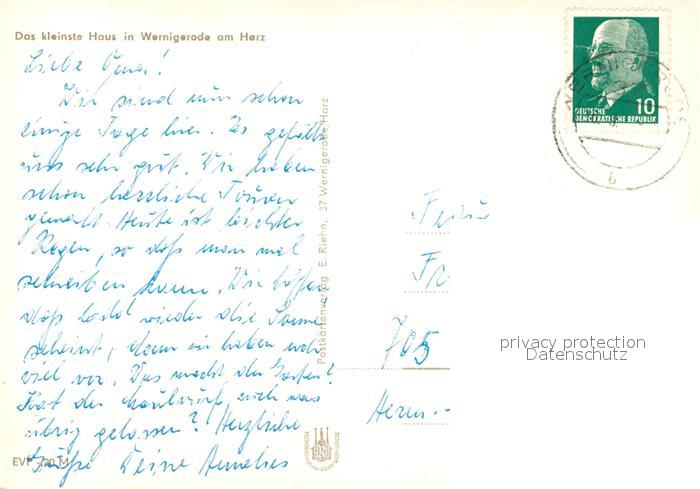 Das kleinste Haus in Wernigerode am Harz
Liebe Oma!
Wir sind nun schon
einige Tage hier. Es gefällt
uns sehr gut. Wir haben
schon herrliche Touren
gemacht. Heute ist leichter
Regen, so daß man mal
schreiben kann. Wir hoffen
daß bald wieder die Sonne
scheint, denn wir haben noch
viel vor. Was macht der Garten?
Hat der Maulwurf euch was
übrig gelassen? Herzliche
Grüße Deine Annelies
EVP 0,20 M
Postkartenverlag E. Riehn, 37 Wernigerode/Harz
DEUTSCHE
DEMOKRATISCHE REPUBLIK
10
WERNIGERODE
b
Fr
705
privacy protection
Datenschutz